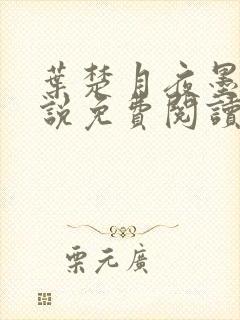 葉楚月夜墨
說免費閱讀
栗元廣